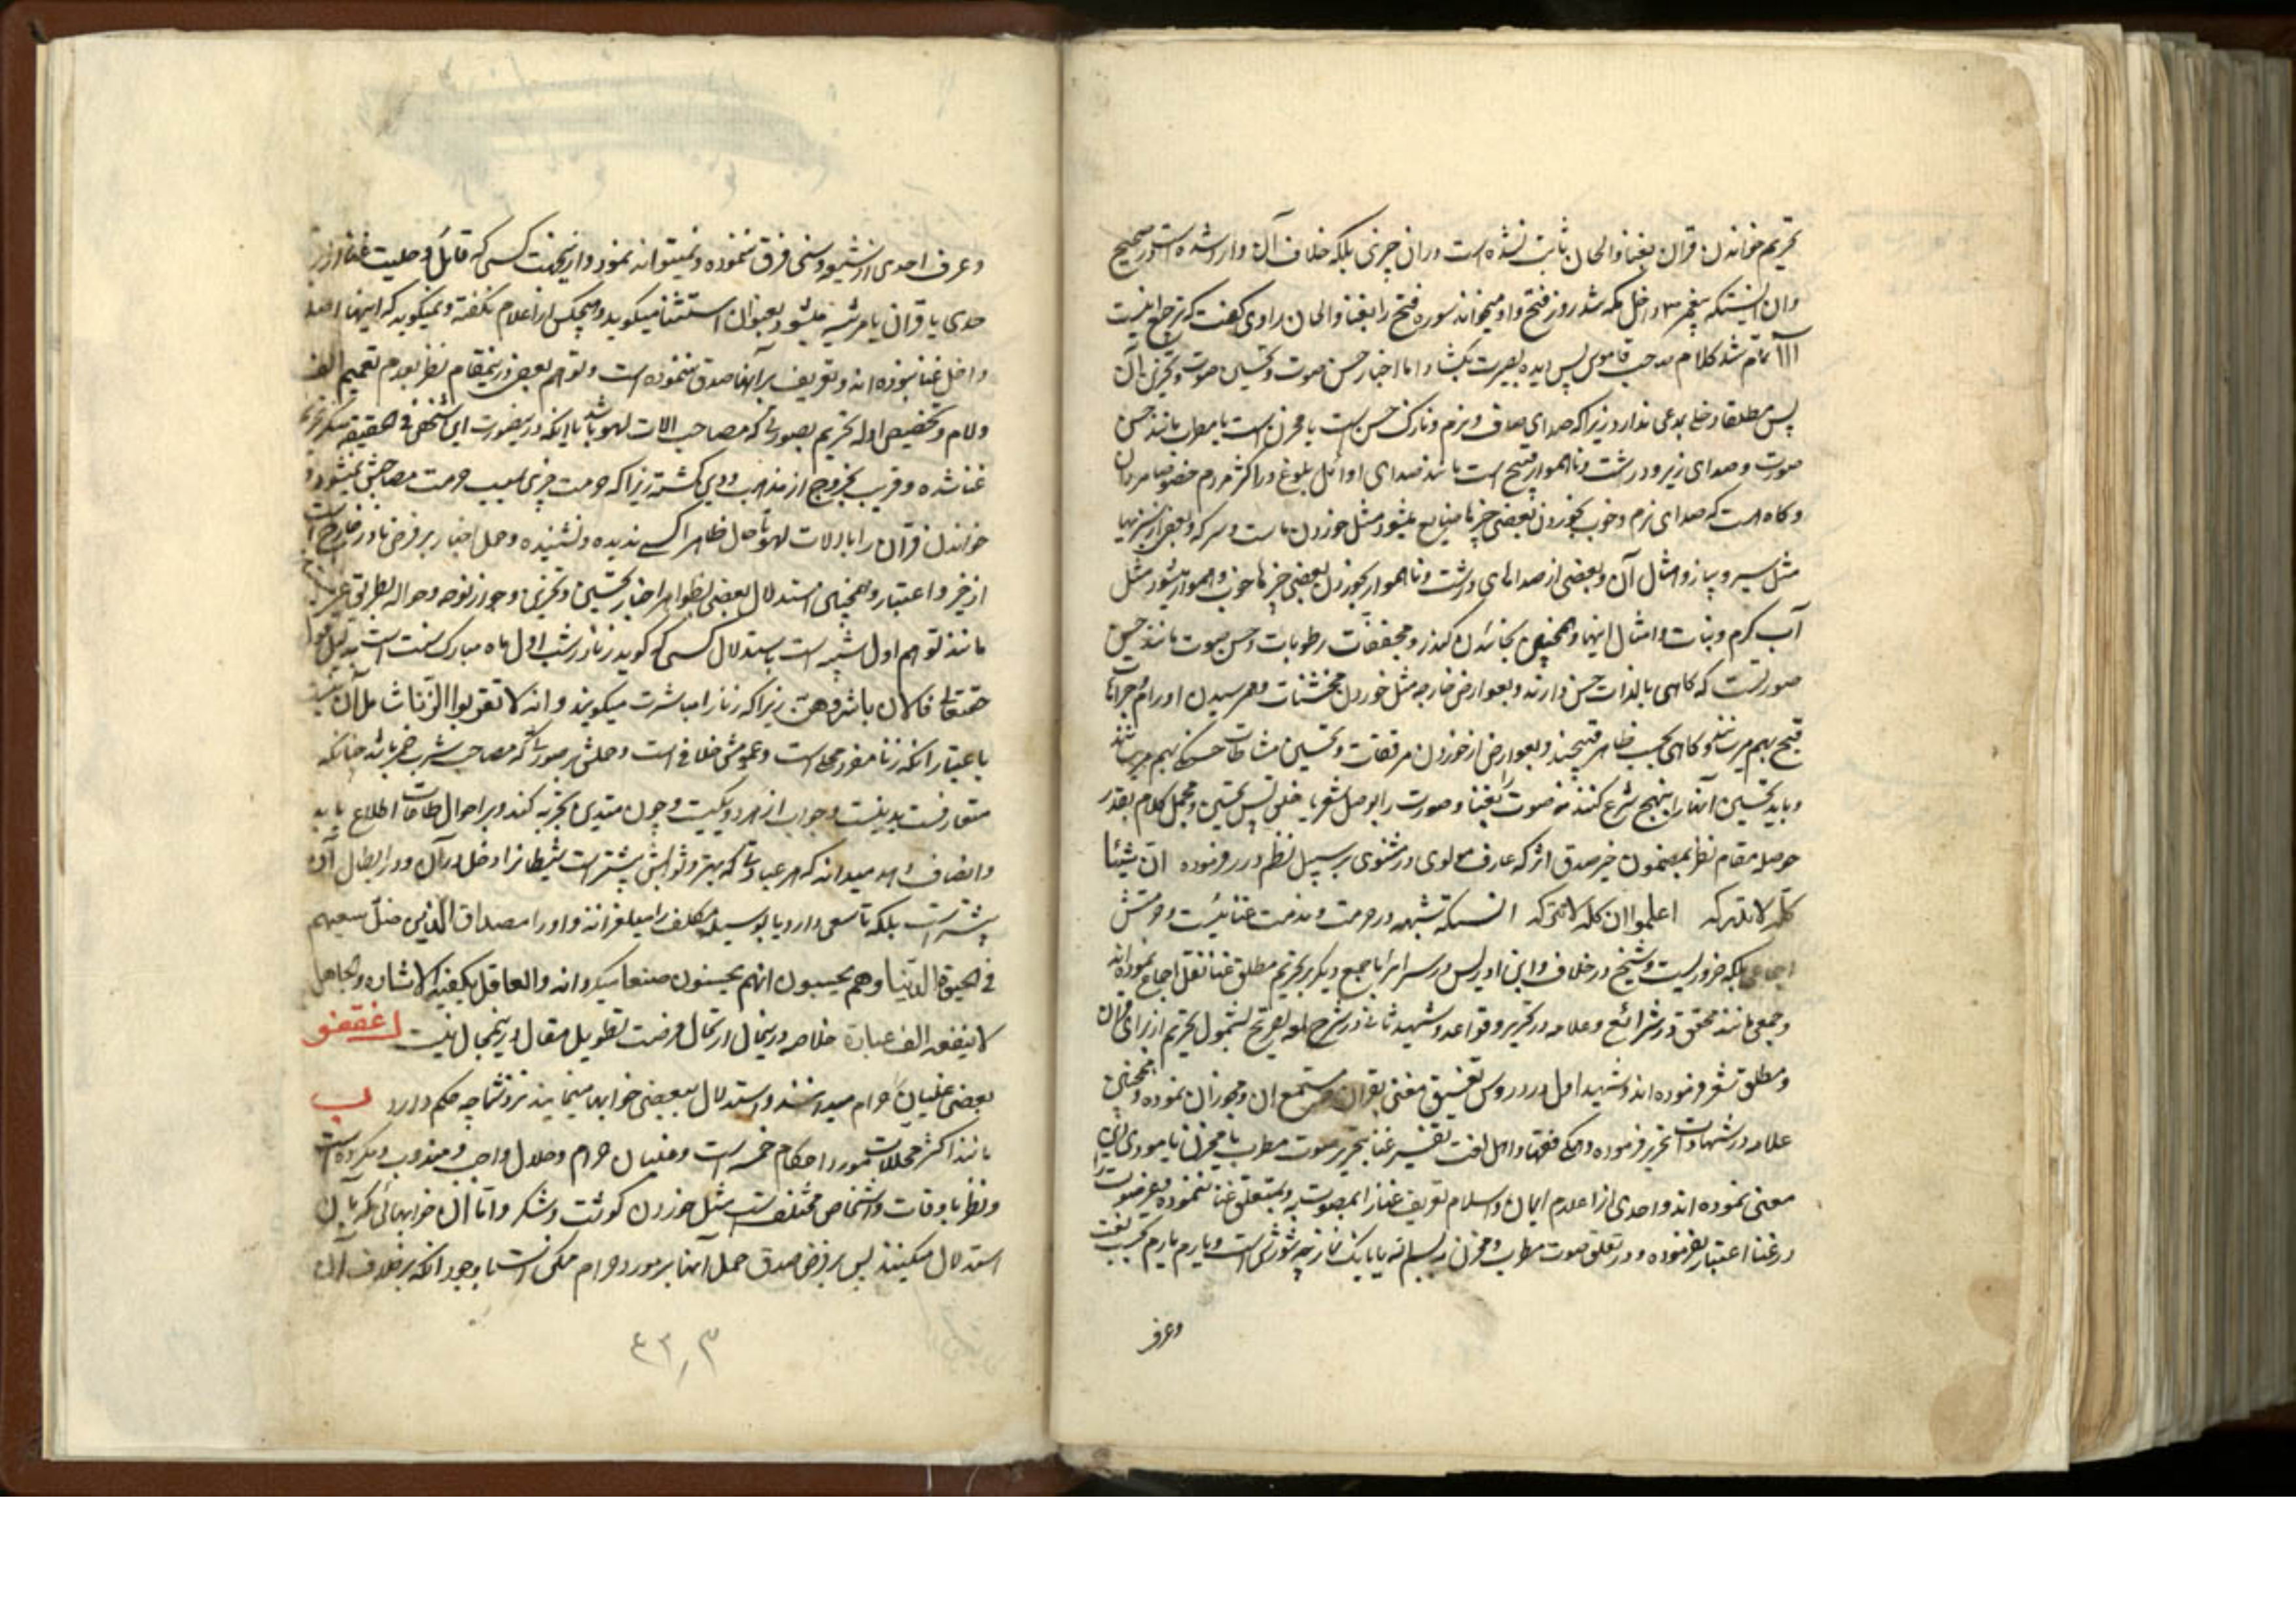 تحریم خواندن قران بغنا و الحان ثابت نشده است و ران چیزی بلکه خلاف آن وارد شده است در صحیح
وان اینستکه پیغمبر داخل مکه شد روز فتح و او میخواند سوره فتح را بغنا و الحان راوی گفت که ترجیع اینست
آآآ تمام شد کلام صاحب قاموس پس دیده بصیرت بگشا و اما اخبار حسن صوت و تحسین صوت و تحزین آن
پس مطلقا دخلی بمدعی ندارد زیرا که صدای صاف و نرم و نازک حسن است یا محزن است یا مطرب مانند حسن
صورت و صدای زیر و درشت و ناهموار قبیح است مانند صدای اوائل بلوغ در اکثر مردم خصوصا مردان
و کاه است که صدای نرم و خوب بخوردن بعضی چیزها ضایع میشود مثل خوردن ماست و سرکه و بعض از سبزیها
مثل سیر و پیاز و امثال آن و بعضی از صداهای درشت و ناهموار بخوردن بعضی چیزها خوب و هموار میشود مثل
آب گرم و نبات و امثال اینها و همچنین بخائیدن کندر و مجففات رطوبات و حسن صوت مانند حسن
صورتست که کاهی بالذات حسن دارند و بعوارض خارجه مثل خوردن مخشنات و بهم رسیدن اورام و جراحات
قبح بهم میرسانند و کاهی بحسب ظاهر قبیحند و بعوارض از خوردن مرققات و تحسین مشاطات حسنکی بهم میرسانند
و باید تحسین آنها را بنهج شرع کنند نه صوت را بغنا و صورت را بوصل شعر یا خلق پس تحسین و مجمل کلام بقدر
حوصله مقام نظر بمضمون خیر صدق اثر که عارف مولوی در مثنوی بر سبیل نظم در فرموده ان شیئا
کله لا یدرک اعلموا ان کله لا یترک انستکه شبهه در حرمت و مذمت غنا نیست و حرمتش
اجماعی بلکه ضروریست و شیخ در خلاف و ابن ادریس در سرائر با جمع دیگر بر تحریم مطلق غنا نقل اجماع نموده‌اند
و جمعی مانند محقق در شرائع و علامه در تحریر و قواعد و شهید ثانی در شرح لمعه تصریح بشمول تحریم از برای قران
و مطلق شعر فرموده اند و شهید اول در دروس تفسیق مغنی بقران و مستمع ان و مجوز ان نموده و همچنین
علامه در شهادات تحریر فرموده و همکی فقها و اهل لغت تفسیر غنا بتحریر صوت مطرب یا محزن یا مودی این
معنی نموده اند و احدی از اعلام ایمان و اسلام تعریف غنا را بمصوت به و بمتعلق غنا ننموده و غیر صوت را
در غنا اعتبار نفرموده و در تعلق صوت مطرب و محزن به بسم الله یا بانک نماز چه شورش است و یارم یارم بحسب لغت
وعرف
و عرف احدی از شیعه و سنی فرق ننموده و نمیتواند نمود و ازینجهت کسی که قائل و حلیت غنا از
حدی یا قران یا مرثیه میشود بعنوان استثنا میکوید و هیچکس از اعلام نگفته و نمیکوید که اینها اصلا
داخل غنا نبوده اند و تعریف بر آنها صدق ننموده است و توهم بعضی درینمقام نظر بعدم تعمیم الف
و لام و تخصیص ادله تحریم بصورتی که مصاحب الات لهو باشد با اینکه درینصورت این شخص فی الحقیقه منکر تحریم
غنا شده و قریب بخروج از مذهب و دین کشته زیرا که حرمت چیزی بسبب حرمت مصاحبش نمیشود و
خواندن قران را با الات لهو تا حال ظاهرا کسی ندیده و نشنیده و حمل اخبار بر فرض نادر خارج است
از خیر و اعتبار و همچنین استدلال بعضی بظواهر اخبار تحسین و تحزین و جواز نوحه و حواله بطریق عرب
مانند توهم اول شبیه است باستدلال کسی که گوید زنا در شب اول ماه مبارک سنت است بدلیل قول
حقتعالی فالان باشروهن زیرا که زنا را مباشرت میکویند و انه لا تقربوا الزنا شامل آن نیست
باعتبار انکه زنا مفرد محلی است و عمومش خلافی است و حملش بر صورتی که مصاحب شرب خمر باشد چنانکه
متعارفست بد نیست و جواب از هر دو یکیست و چون متدین تجربه کند و بر احوال طاعات اطلاع یابد
و انصاف دهد میداند که هر عبادتی که بهتر و ثوابش بیشتر است شیطانرا دخل در آن و در ابطال آن
بیشتر است بلکه تا سعی دارد یا بوسیله مکلف را میلغزاند و او را مصداق الذین ضل سعیهم
فی الحیوة الدنیا و هم یحسبون انهم یحسنون صنعا میکرداند و العاقل یکفیه الاشاره و الجاهل
لا ینفعه الف عبارة خلاصه درینحال ارتحال فرصت تطویل مقال درینمجال نیست
بعضی غلیان حرام میدانند و استدلال ببعضی خوابها مینمایند نزد شما چه حکم دارد ب
مانند اکثر محللات مورد احکام خمسه است و غلیان حرام و حلال و واجب و مندوب و مکروه است
و نظر باوقات و اشخاص مختلفست مثل خوردن کوشت و شکر و اما ان خوابهائی که بآن
استدلال میکنند پس بر فرض صدق حمل آنها بر مورد حرام ممکن است با وجود آنکه بر خلاف آن